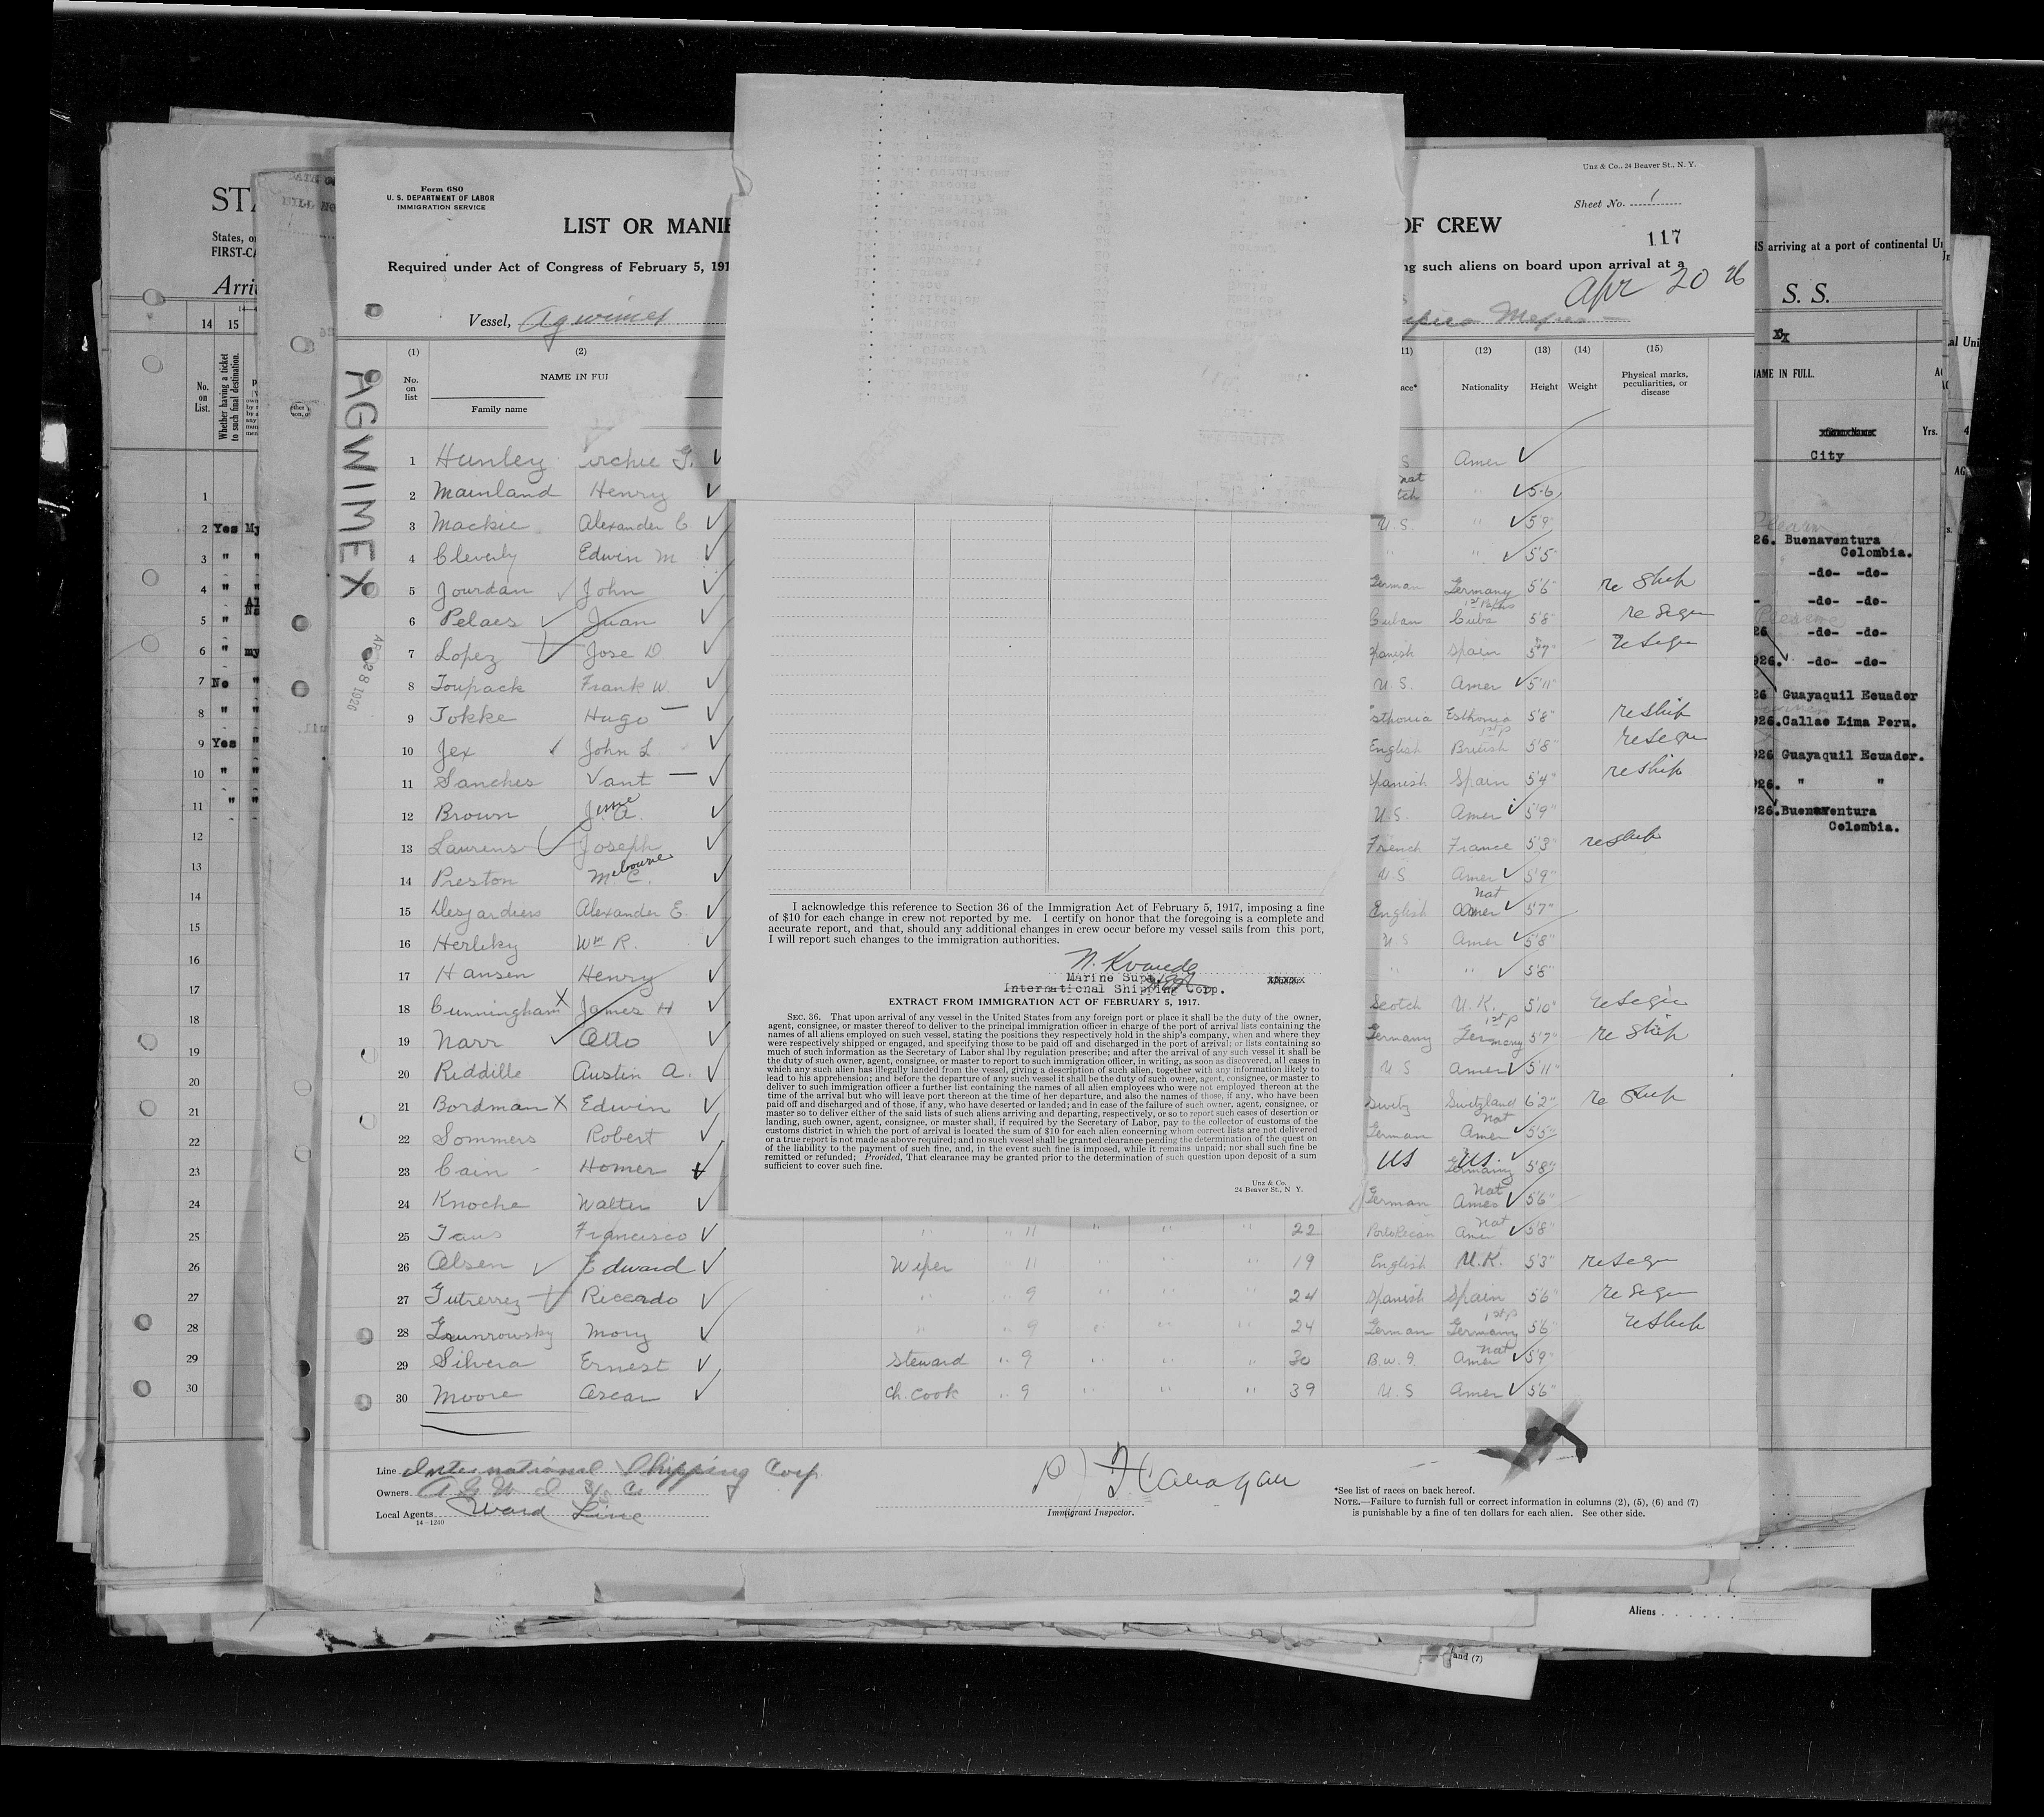 Form 680
U. S. DEPARTMENT OF LABOR
IMMIGRATION SERVICE
Unz & Co., 24 Beaver St., N. Y.
LIST OR MANIF
OF CREW
Sheet No. 1
117
Required under Act of Congress of February 5, 191
ng such aliens on board upon arrival at a
Apr 20 26
Vessel, Agwimex
Mexico
(1) (2) 11) (12) (13) (14) (15)
No. on list
NAME IN FUL
Family name
ace*
Nationality
Height
Weight
Physical marks, peculiarities, or disease
AGWIMEX
APR 28 1926
1 Hunley Archie G. S Amer
2 Mainland Henry nat tch " 5-6
3 Mackie Alexander C. U.S. " 5'9"
4 Cleverly Edwin M " " 5'5"
5 Jourdan John German Germany 1st Papers 5'6" re Ship
6 Pelaes Juan Cuban Cuba 5'8"
7 Lopez Jose D. Spanish Spain 5'7"
8 Toupack Frank W. U.S. Amer 5'11"
9 Tokke Hugo Esthonia Esthonia 5'8" reship
10 Jex John L English British 1st P 5'8"
11 Sanches Vant Spanish Spain 5'4" reship
12 Brown Jesse A. U.S. Amer 5'9"
13 Laurens Joseph French France 5'3" reship
14 Preston Melbourne C. U.S. Amer 5'9"
15 Desjardiens Alexander E. English Amer nat 5'7"
16 Herlihy Wm R. U.S Amer 5'8"
17 Hansen Henry " " 5'8"
18 Cunningham James H Scotch U.K. 5'10"
19 Narr Otto Germany Germany 1st P 5'7" re Ship
20 Riddille Austin A. U S Amer 5'11"
21 Bordman X Edwin Switz Switzland 6'2" re Ship
22 Sommers Robert German Amer Nat 5'5"
23 Cain Homer US US Germany 5'8"
24 Knoche Walter German Amer Nat 5'6"
25 Taus Francisco " " 11 " " " 22 PortoRican Amer nat 5'8"
26 Olsen Edward Wiper 11 " " " 19 English U.K. 5'3"
27 Gutierrez Riccardo " " 9 " " " 24 Spanish Spain 5'6"
28 Mory " " 9 " " " 24 German Germany 1st P 5'6" reship
29 Silvera Ernest Steward " 9 " " " 30 B.W.I. Amer nat 5'9"
30 Moore Oscar Ch. Cook " 9 " " " 39 U.S Amer 5'6"
I acknowledge this reference to Section 36 of the Immigration Act of February 5, 1917, imposing a fine
of $10 for each change in crew not reported by me. I certify on honor that the foregoing is a complete and
accurate report, and that, should any additional changes in crew occur before my vessel sails from this port,
I will report such changes to the immigration authorities.
N. Kvande
Marine Supt.
International Shipping Corp.
EXTRACT FROM IMMIGRATION ACT OF FEBRUARY 5, 1917.
SEC. 36. That upon arrival of any vessel in the United States from any foreign port or place it shall be the duty of the owner,
agent, consignee, or master thereof to deliver to the principal immigration officer in charge of the port of arrival lists containing the
names of all aliens employed on such vessel, stating the positions they respectively hold in the ship's company, when and where they
were respectively shipped or engaged, and specifying those to be paid off and discharged in the port of arrival; or lists containing so
much of such information as the Secretary of Labor shall by regulation prescribe; and after the arrival of any such vessel it shall be
the duty of such owner, agent, consignee, or master to report to such immigration officer, in writing, as soon as discovered, all cases in
which any such alien has illegally landed from the vessel, giving a description of such alien, together with any information likely to
lead to his apprehension; and before the departure of any such vessel it shall be the duty of such owner, agent, consignee, or master to
deliver to such immigration officer a further list containing the names of all alien employees who were not employed thereon at the
time of the arrival but who will leave port thereon at the time of her departure, and also the names of those, if any, who have been
paid off and discharged and of those, if any, who have deserted or landed; and in case of the failure of such owner, agent, consignee, or
master so to deliver either of the said lists of such aliens arriving and departing, respectively, or so to report such cases of desertion or
landing, such owner, agent, consignee, or master shall, if required by the Secretary of Labor, pay to the collector of customs of the
customs district in which the port of arrival is located the sum of $10 for each alien concerning whom correct lists are not delivered
or a true report is not made as above required; and no such vessel shall be granted clearance pending the determination of the quest on
of the liability to the payment of such fine, and, in the event such fine is imposed, while it remains unpaid; nor shall such fine be
remitted or refunded; Provided, That clearance may be granted prior to the determination of such question upon deposit of a sum
sufficient to cover such fine.
Unz & Co.
24 Beaver St., N Y.
Line International Shipping Corp
Owners A G W I S/S Co
Local Agents Ward Line
14—1240
Flanagan
Immigrant Inspector.
*See list of races on back hereof.
NOTE.—Failure to furnish full or correct information in columns (2), (5), (6) and (7)
is punishable by a fine of ten dollars for each alien. See other side.
STA
States, o
FIRST-CA
Arri
14 15
No. on List.
Whether having a ticket to such final destination.
1
2 Yes My
3 " "
4 " "
5 "
6 " my
7 No "
8 " "
9 Yes "
10 " "
11 " "
12
13
14
15
16
17
18
19
20
21
22
23
24
25
26
27
28
29
30
NS arriving at a port of continental Un
S. S.
NAME IN FULL.
City
Yrs.
26. Buenaventura
Colombia.
-do- -do-
-do- -do-
-do- -do-
926. -do- -do-
26 Guayaquil Ecuador
926. Callao Lima Peru.
926 Guayaquil Ecuador.
926. " "
926. Buenaventura
Colombia.
Aliens
and (7)